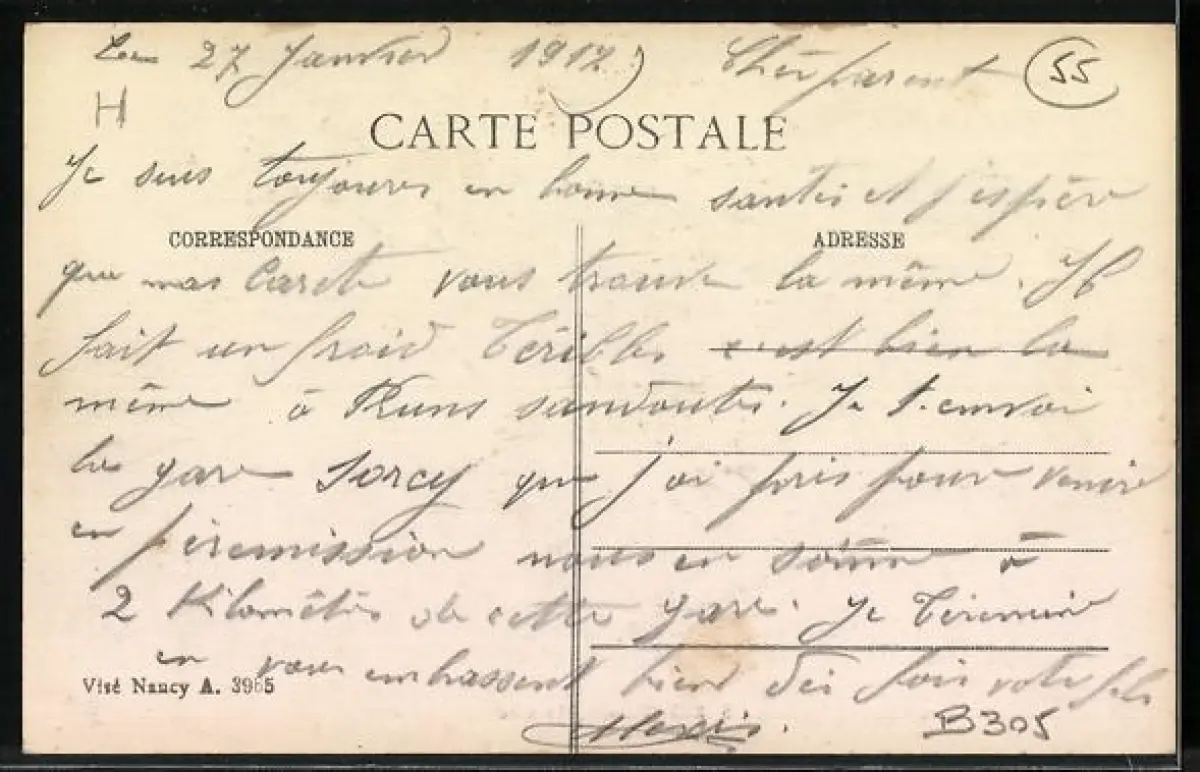 Le 27 Janvier 1917 Chèr parent
55
H
CARTE POSTALE
Je suis toujours en bonne santés et j'espère
CORRESPONDANCE
ADRESSE
que mas Carete vous trouve la même. Il
fait un froid Térible c'est bien la
même à sandoutes. Je t'envoi
la gare Sorcy que j'ai pris pour venire
en péremission nous en somme à
2 Kilomètres de cette gare. Je
en vous embassent bien dés fois votre fils
Visé Nancy A. 3965
Alexis.
B305